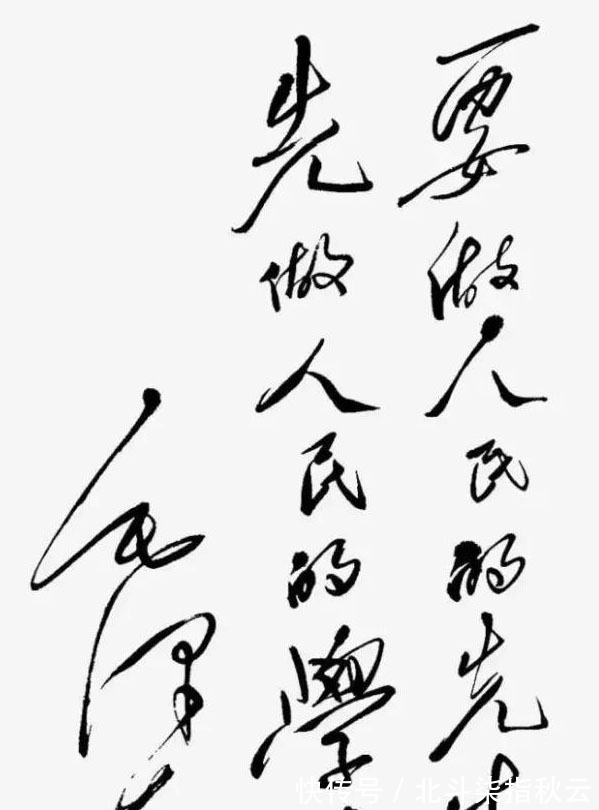 要做人民的先生
先做人民的學
毛泽
快传号/北斗柒指秋云